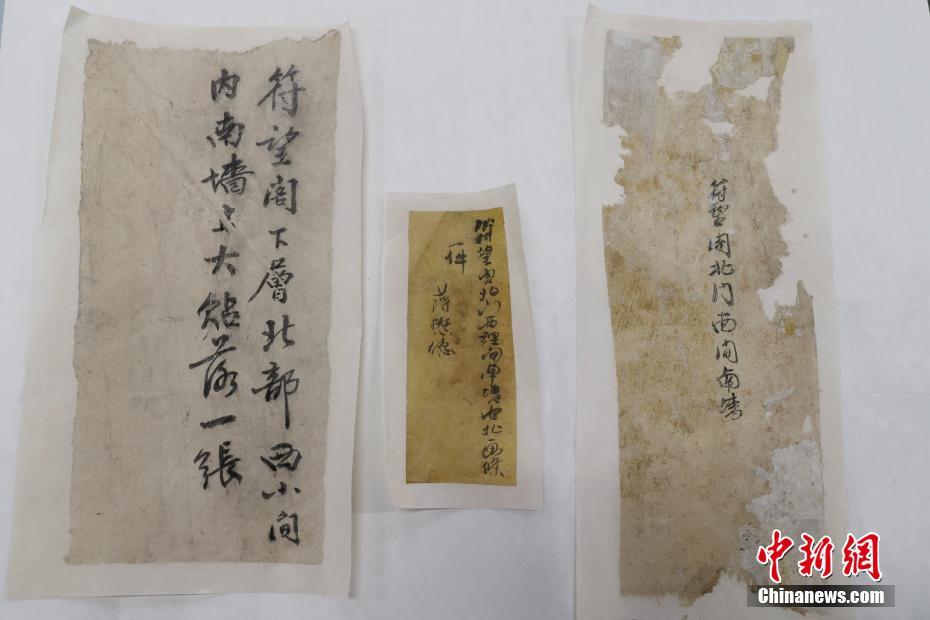 符望阁下層北部西小间
内南墙上大贴落一張
符望阁北门西裡间南墙
一件
符望阁北门西间南墙
中新網
Chinanews.com